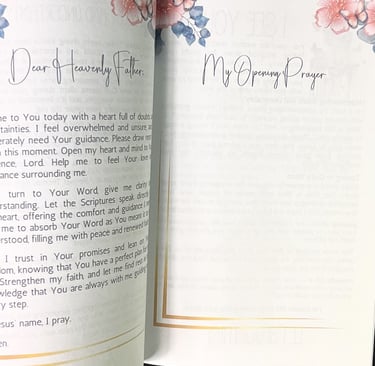 Dear Heavenly Father,
me to You today with a heart full of doubts
tainties. I feel overwhelmed and unsure,
erately need Your guidance. Please draw
this moment. Open my heart and mind to
ence, Lord. Help me to feel Your love
ance surrounding me.
turn to Your Word, give me clarity
rstanding. Let the Scriptures speak directly
heart, offering the comfort and guidance I
me to absorb Your Word as You meant it
rstood, filling me with peace and renewed
I trust in Your promises and lean on
dom, knowing that You have a perfect plan for
Strengthen my faith, and let me find rest
wledge that You are always with me, guiding
ry step.
esus' name, I pray.
en.
My Opening Prayer